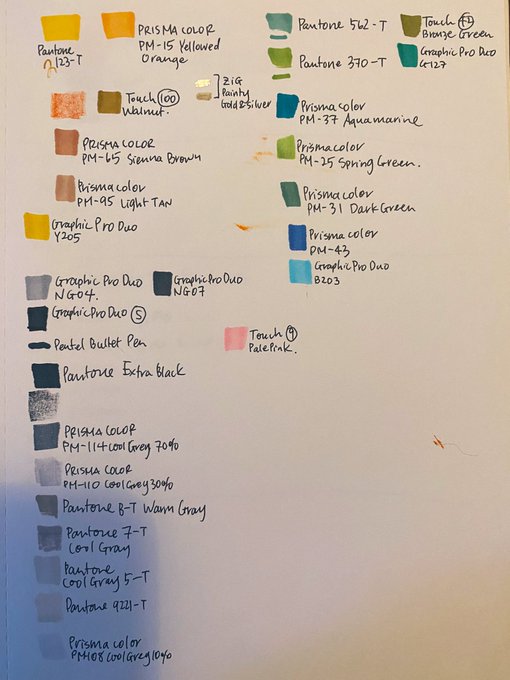 Pantone
123-T
PRISMA COLOR
PM-15 Yellowed
Orange
Touch 100
Walnut.
ZiG
Painty
Gold & Silver
PRISMA COLOR
PM-65 Sienna Brown
Prismacolor
PM-95 Light TAN
Graphic Pro Duo
Y205
Graphic Pro Duo
NG04.
Graphic Pro Duo
NG07
Graphic Pro Duo 5
Pentel Bullet Pen
Pantone Extra Black
PRISMA COLOR
PM-114 Cool Grey 70%
PRISMA COLOR
PM-110 Cool Grey 30%
Pantone 8-T Warm Gray
Pantone 7-T
Cool Gray
Pantone
Cool Gray 5-T
Pantone 9221-T
Prisma color
PM-108 Cool Grey 10%
Pantone 562-T
Pantone 370-T
Touch
Bronze Green
Graphic Pro Duo
G127
Prismacolor
PM-37 Aquamarine
Prismacolor
PM-25 Spring Green.
Prismacolor
PM-31 Dark Green
Prisma color
PM-43
Graphic Pro Duo
B203
Touch 9
Pale Pink.